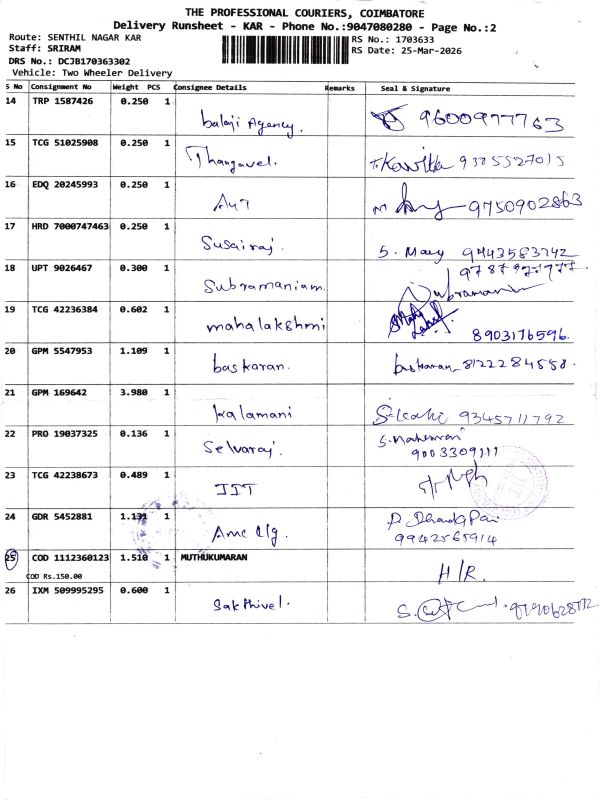 THE PROFESSIONAL COURIERS, COIMBATORE
Delivery Runsheet - KAR - Phone No.:9047080280 - Page No.:2
Route: SENTHIL NAGAR KAR
RS No.: 1703633
Staff: SRIRAM
RS Date: 25-Mar-2026
DRS No.: DCJB170363302
Vehicle: Two Wheeler Delivery
S No Consignment No Weight PCS Consignee Details Remarks Seal & Signature
14 TRP 1587426 0.250 1 balaji Agency. 9600977763
15 TCG 51025908 0.250 1 Thangavel. T. Kavitha
16 EDQ 20245993 0.250 1 9750902863
17 HRD 7000747463 0.250 1 Susairaj. S. Mary 9443583742
18 UPT 9026467 0.300 1 Subramaniam. Subramanian
19 TCG 42236384 0.602 1 mahalakshmi 8903176596.
20 GPM 5547953 1.109 1 baskaran. baskaran 8122284558.
21 GPM 169642 3.980 1 kalamani 9345711792
22 PRO 19037325 0.136 1 Selvaraj. S. Maheswari
9003309111
23 TCG 42238673 0.489 1 IIT
24 GDR 5452881 1.131 1 Amc clg. P. DhandaPani
9942565914
25 COD 1112360123 1.510 1 MUTHUKUMARAN H/R.
COD Rs.150.00
26 IXM 509995295 0.600 1 Sakthivel.